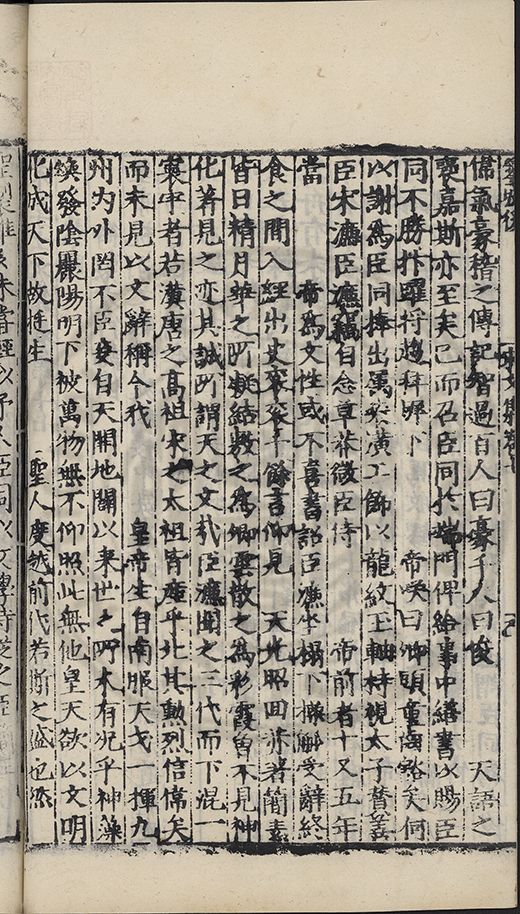 偉氣豪稽之傳記智過百人曰豪千人曰俊　天語之
褒嘉斯亦至矣已而召臣同於端門俾給事中繕書以賜臣
同不勝抃躍將趨科墀下　帝喚曰卿頭童齒豁矣何
以謝為臣同捧出萬求潢工飾以龍紋玉軸持視太子贊善
臣宋濂臣濂竊自念草莽微臣侍　帝前者十又五年
當　帝為文性或不喜書詔臣濂坐榻下操觚受辭終
食之間入經出史袞袞千餘言仰見　天光昭回赤著簡素
皆日精月華之所凝結敷之為卿雲散之為彩霞曾不見神
化著見之亦其誠所謂天之文哉臣濂聞之三代而下混一
寰宇者若漢唐之高祖宋之太祖皆產乎北其勳烈信偉矣
而未見以文辭稱今我　皇帝生自南服天戈一揮九
州內外罔不臣妾自天開地闢以來世之所未有況乎神藻
煥發陰麗陽明下被萬物無不仰照此無他皇天欲以文明
化成天下故挺生　聖人度越前代若斯之盛也然